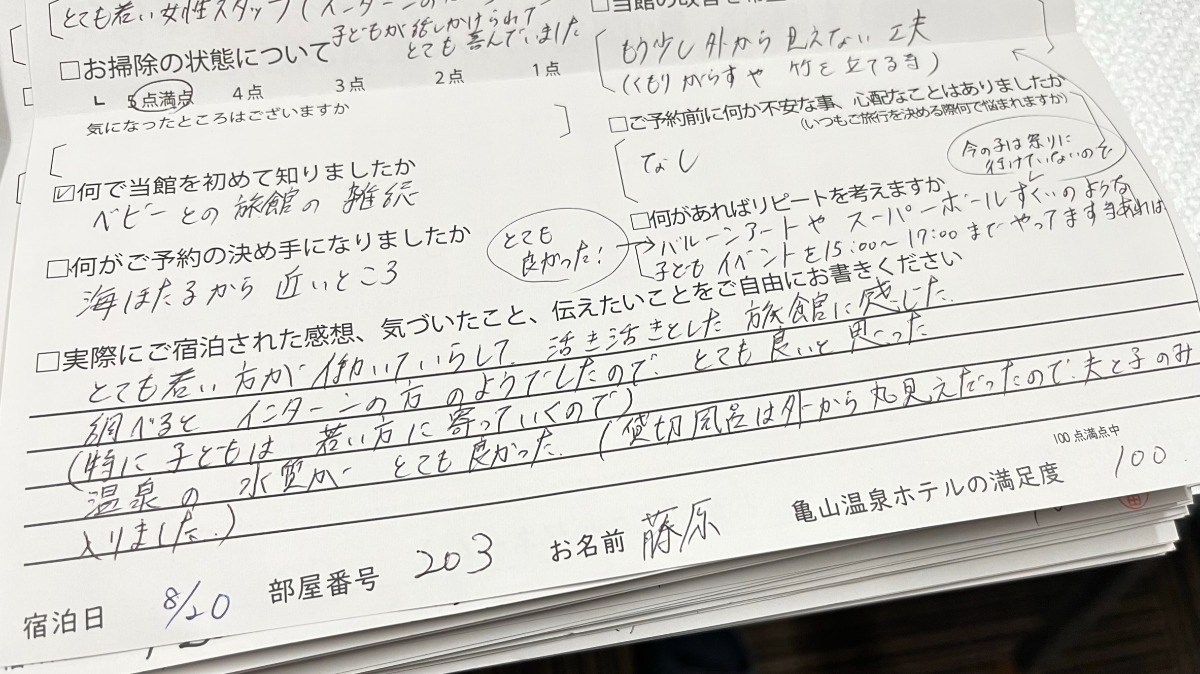 とても若い女性スタッフ(インターンの
子どもが話しかけられて
とても喜んでいました
□お掃除の状態について
5点満点 4点 3点 2点 1点
気になったところはございますか
☑何で当館を初めて知りましたか
ベビーとの旅館の雑誌
□何がご予約の決め手になりましたか
海ほたるから近いところ
もう少し外から見えない工夫
(くもりがらすや 竹を立てる等)
□ご予約前に何か不安な事、心配なことはありましたか
(いつもご旅行を決める際何で悩まれますか)
なし
今の子は祭りに
行けていないので
□何があればリピートを考えますか
とても
良かった!
→バルーンアートや スーパーボールすくいのような
子どもイベントを15:00~17:00までやってます
□実際にご宿泊された感想、気づいたこと、伝えたいことをご自由にお書きください
とても若い方が働いていらして、活き活きとした旅館に感じた。
調べると インターンの方のようでしたので、とても良いと思った
(特に子どもは 若い方に寄っていくので)
温泉の 水質が とても良かった。(貸切風呂は外から丸見えだったので、夫と子のみ
入りました。)
宿泊日 8/20 部屋番号 203 お名前 藤原 亀山温泉ホテルの満足度 100点満点中 100